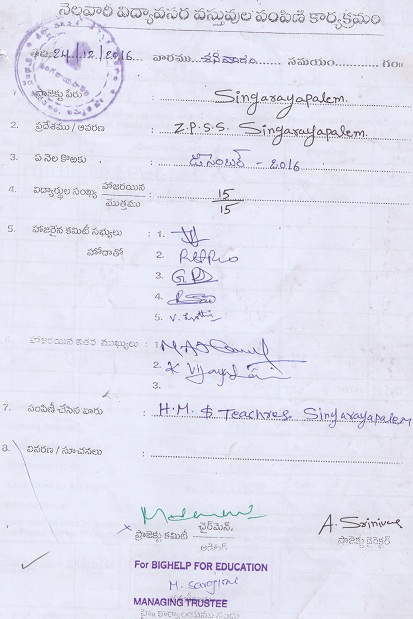 నెలవారీ విద్యావసర వస్తువుల పంపిణీ కార్యక్రమం
24.12.2016 వారము శనివారం సమయం గం॥
ప్రాజెక్టు పేరు : Singarayapalem.
2. ప్రదేశము / ఆవరణ : Z.P.S.S. Singarayapalem.
3. ఏ నెల కొఱకు : డిసెంబర్ - 2016
4. విద్యార్థుల సంఖ్య హాజరయిన / మొత్తము : 15/15
5. హాజరైన కమిటీ సభ్యులు : 1.
హోదాతో 2.
3.
4.
5.
హాజరయిన ఇతర ముఖ్యులు : 1.
2. K Vijayalaxmi
3.
7. పంపిణీ చేసిన వారు : H.M. & Teachres. Singarayapalem
8. వివరణ / సూచనలు :
ఛైర్మెన్, A. Srinivas
ప్రాజెక్టు కమిటీ ప్రాజెక్టు డైరెక్టర్
For BIGHELP FOR EDUCATION
M. Sarojini
MANAGING TRUSTEE